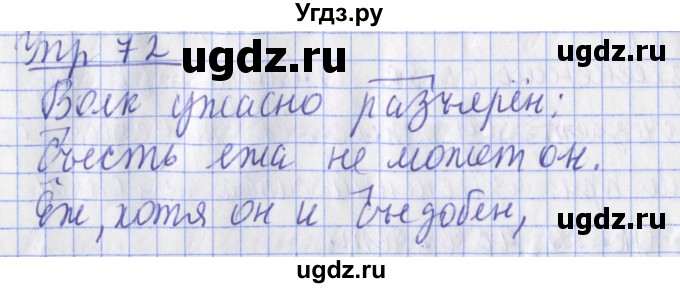 Угдз.ру
Упр 72
ugdz.ru
ugdz.ru
Волк ужасно разъярён:
Съесть ежа не может он.
ugdz.ru
Ёж, хотя он и съедобен,
ugdz.ru
ugdz.ru